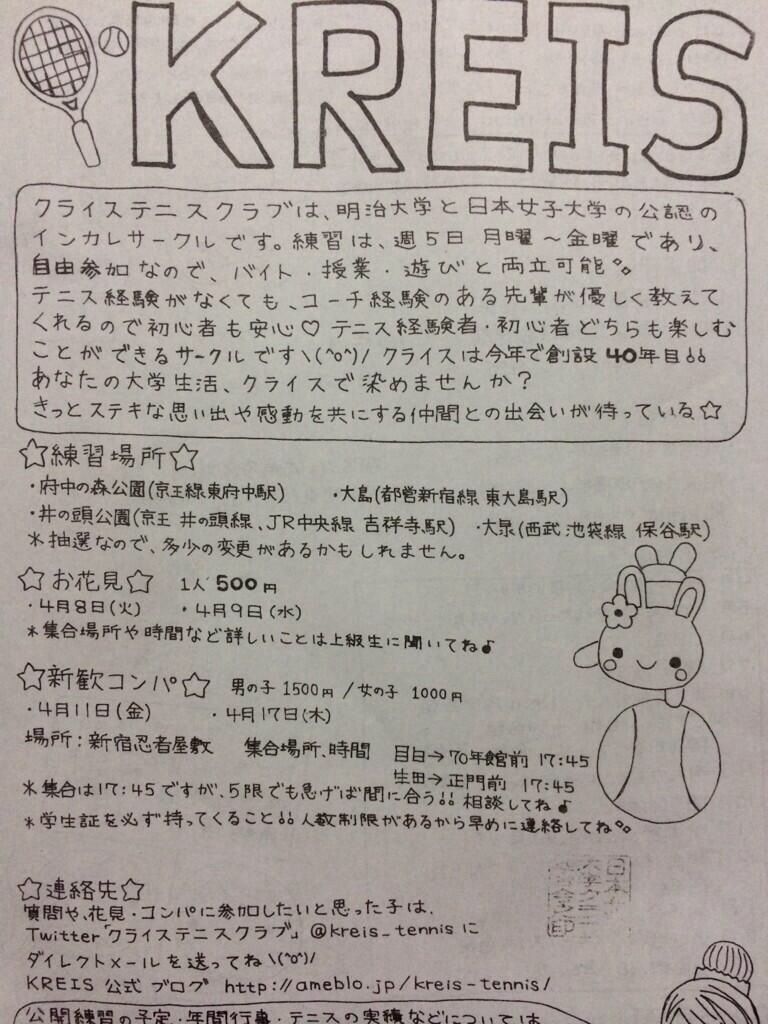 KREIS
クライステニスクラブは、明治大学と日本女子大学の公認の
インカレサークルです。練習は、週5日 月曜～金曜であり、
自由参加なので、バイト・授業・遊びと両立可能
テニス経験がなくても、コーチ経験のある先輩が優しく教えて
くれるので初心者も安心♡ テニス経験者・初心者どちらも楽しむ
ことができるサークルです\(^o^)/ クライスは今年で創設40年目!!
あなたの大学生活、クライスで染めませんか?
きっとステキな思い出や感動を共にする仲間との出会いが待っている☆
☆練習場所☆
・府中の森公園(京王線東府中駅) ・大島(都営新宿線 東大島駅)
・井の頭公園(京王 井の頭線、JR中央線 吉祥寺駅) ・大泉(西武 池袋線 保谷駅)
*抽選なので、多少の変更があるかもしれません。
☆お花見☆ 1人 500円
・4月8日(火) ・4月9日(水)
*集合場所や時間など詳しいことは上級生に聞いてね♪
☆新歓コンパ☆ 男の子 1500円 / 女の子 1000円
・4月11日(金) ・4月17日(木)
場所:新宿忍者屋敷 集合場所、時間 目白→70年館前 17:45
生田→正門前 17:45
*集合は17:45ですが、5限でも急げば間に合う!! 相談してね♪
*学生証を必ず持ってくること!! 人数制限があるから早めに連絡してね
☆連絡先☆
質問や、花見・コンパに参加したいと思った子は、
Twitter「クライステニスクラブ」@kreis_tennis に
ダイレクトメールを送ってね\(^o^)/
KREIS 公式ブログ http://ameblo.jp/kreis-tennis/
公開練習の予定・年間行事・テニスの実績などについては